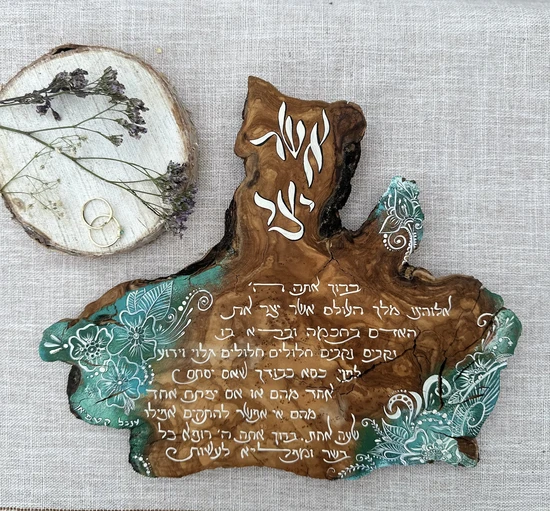 אשר
יצר
ברוך אתה ה'
אלוהינו מלך העולם אשר יצר את
האדם בחכמה וברא בו
נקבים נקבים חלולים חלולים גלוי וידוע
לפני כסא כבודך שאם יסתם
אחד מהם או אם יפתח אחד
מהם אי אפשר להתקיים אפילו
שעה אחת. ברוך אתה ה' רופא כל
בשר ומפליא לעשות